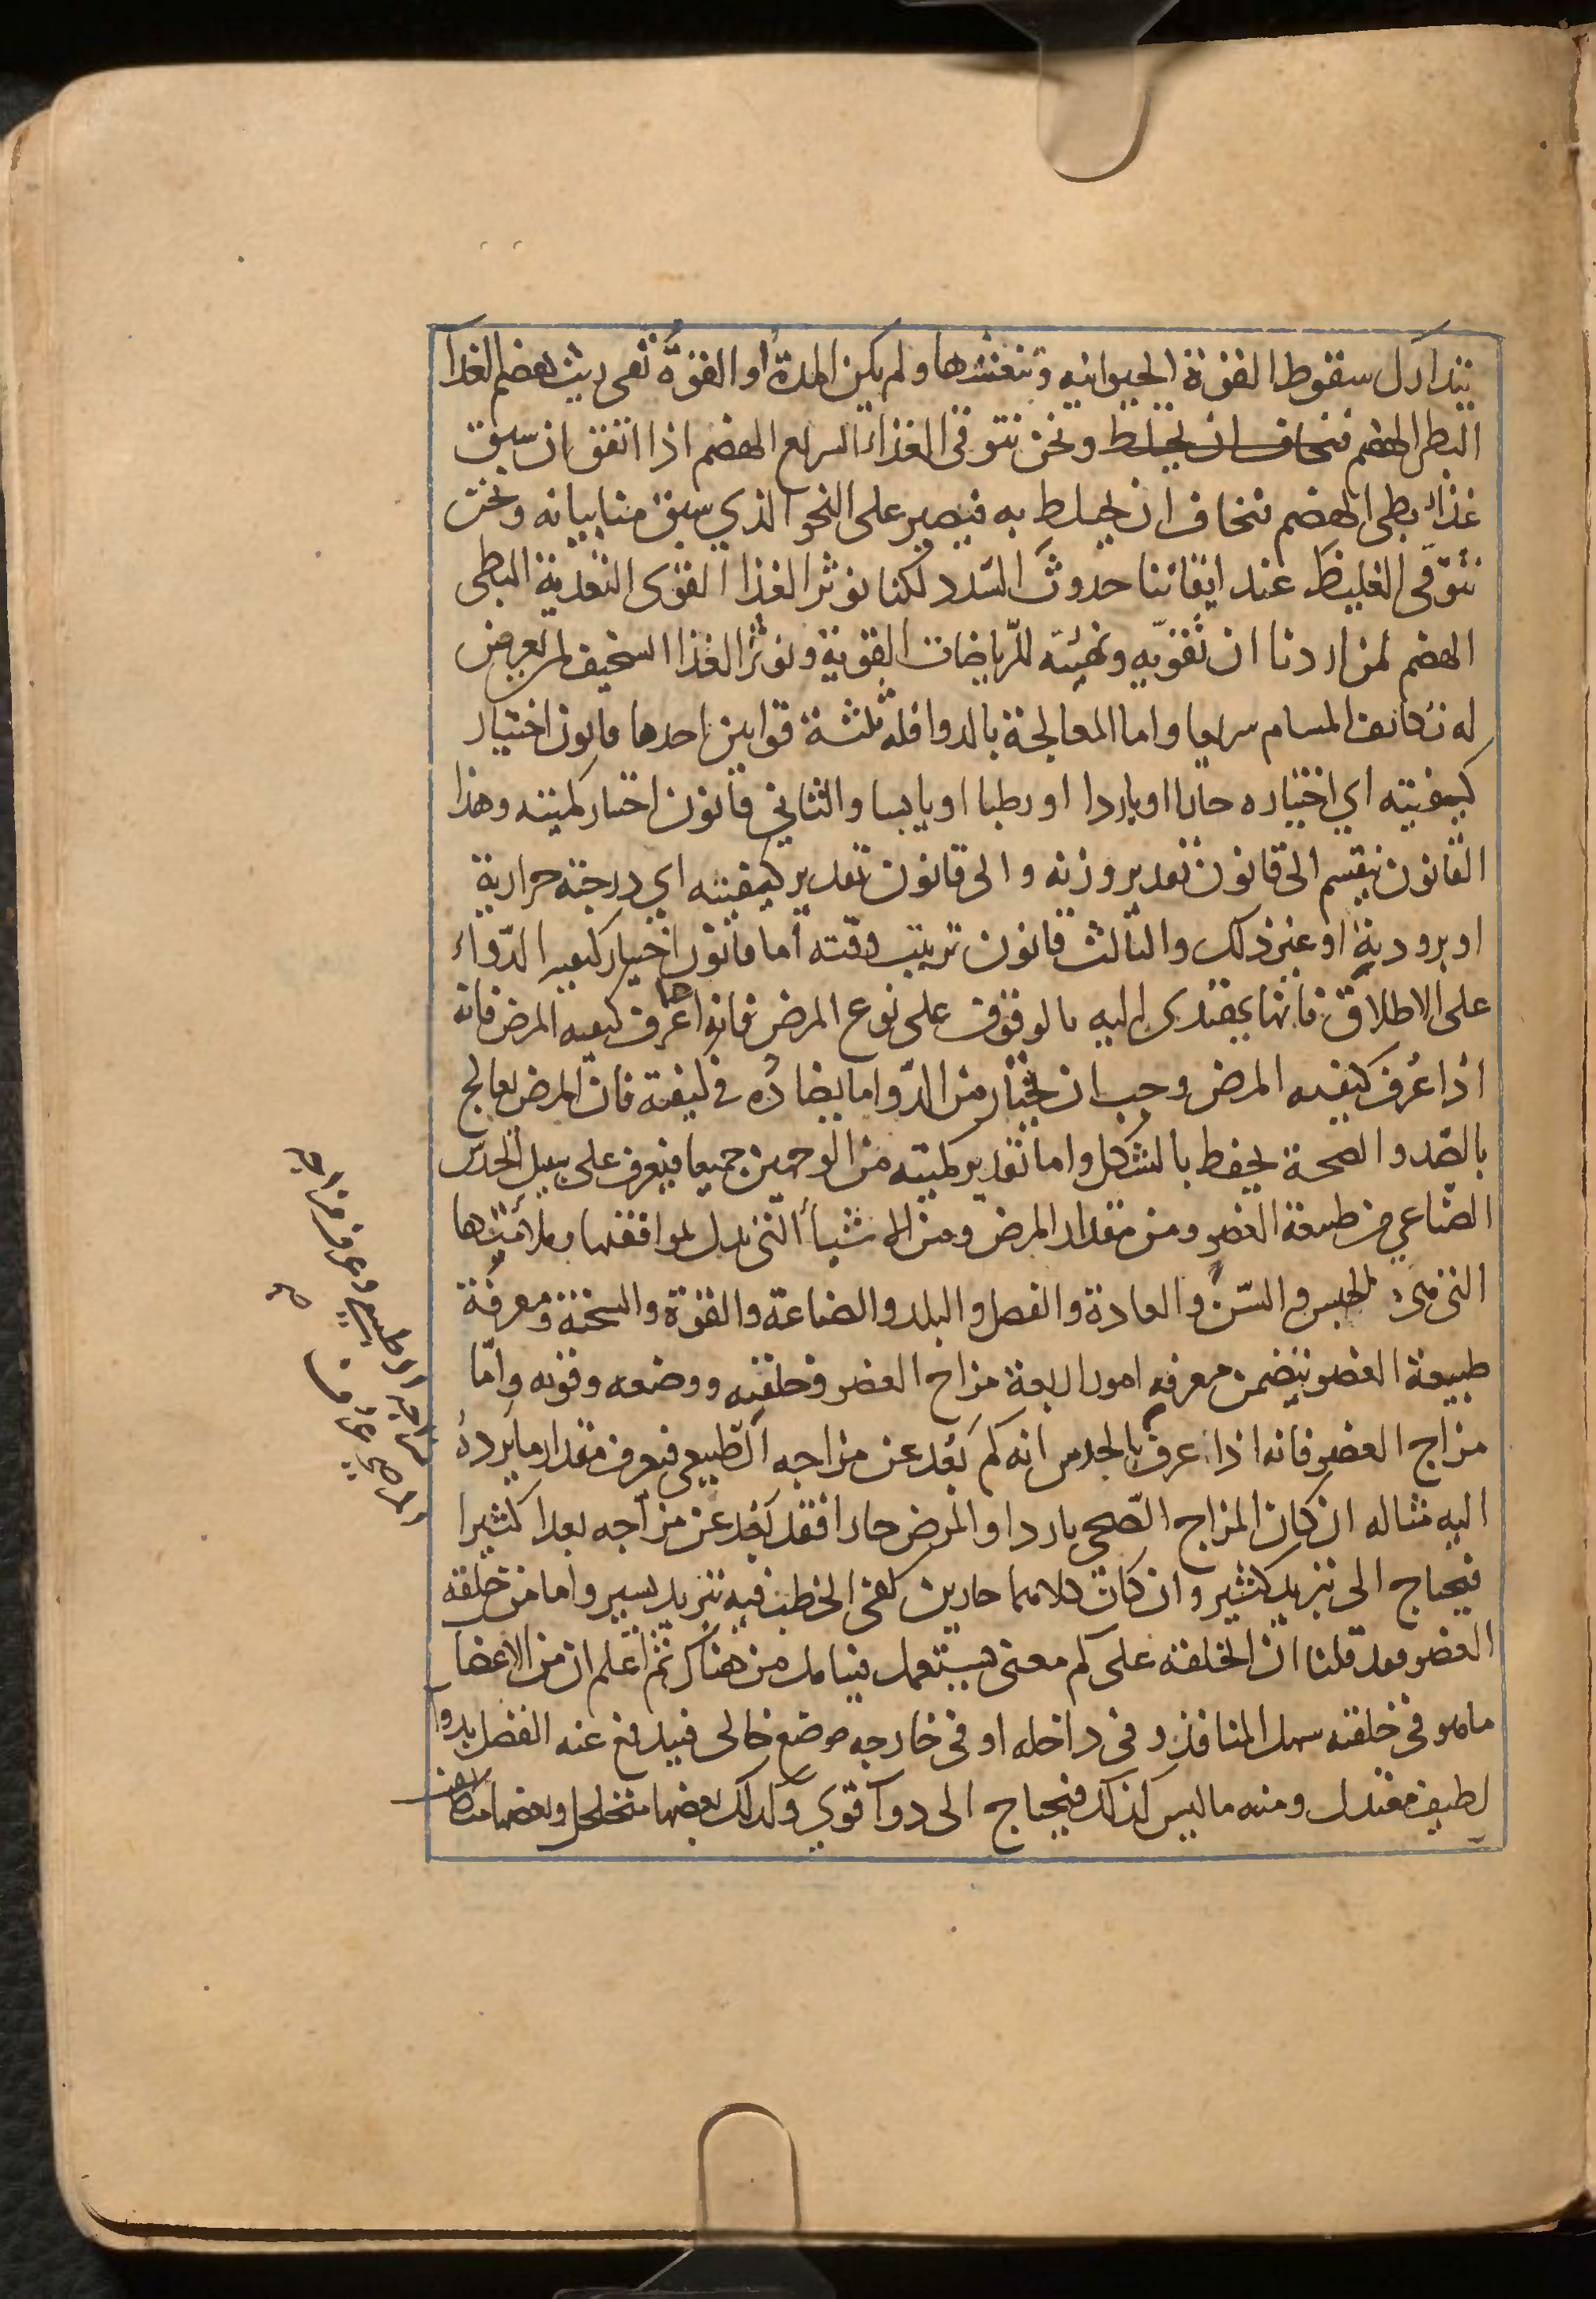 نتدارك سقوط القوة الحيوانيه وتنعشها ولم يكن المدة او القوة تفى ريث هضم الغذا
البطى الهضم فنخاف ان يختلط ونحن نتوقى الغذاء السريع الهضم اذا اتفق ان سبق
غذاء بطى الهضم فنخاف ان يختلط به فيصير على النحو الذي سبق منا بيانه ونحن
نتوقى الغليظ عند ايقاننا حدوث السدد لكنا نوثر الغذا القوى التغذية البطى
الهضم لمن اردنا ان نقويه ونهيئه للرياضات القوية ونوثر الغذا السخيف لمن يعرض
له تكاثف المسام سريعا واما المعالجة بالدوا فله ثلثة قوانين احدها قانون اختيار
كيفيته اي اختياره حارا او باردا او رطبا او يابسا والثاني قانون اختيار كميته وهذا
القانون ينقسم الى قانون تقدير وزنه والى قانون تقدير كيفيته اي درجة حرارية
او برودية او غير ذلك والثالث قانون ترتيب وقته اما قانون اختيار كيفية الدواء
على الاطلاق فانما يهتدى اليه بالوقوف على نوع المرض فانه اذا عرف كيفيه المرض فانه
اذا عرف كيفيه المرض وجب ان يختار من الدوا ما يضاده في كيفيته فان المرض يعالج
بالضد والصحة يحفظ بالشكل واما تقدير كميته من الوجهين جميعا فيعرف على سبيل الحدس
الصناعي من طبيعة العضو ومن مقدار المرض ومن الاشيا التى تدل بموافقتها وملائمتها
التى هى الجنس والسن والعادة والفصل والبلد والصناعة والقوة والسحنة ومعرفة
طبيعة العضو يتضمن معرفه امور اربعة مزاج العضو وخلقته ووضعه وقوته واما
مزاج العضو فانه اذا عرف بالحدس انه كم بعد عن مزاجه الطبيعى فيعرف مقدار ما يرده
اليه مثاله ان كان المزاج الصحى باردا والمرض حارا فقد بعد عن مزاجه بعدا كثيرا
فيحتاج الى تبريد كثير وان كان كلاهما حارين كفى الخطب فيه تبريد يسير واما من خلقة
العضو فقد قلنا ان الخلقة على كم معنى يستعمل فيتامل من هناك ثم اعلم ان من الاعضا
ما هو فى خلقته سهل المنافذ و فى داخله او فى خارجه موضع خالى فيدفع عنه الفضل بدوا
لطيف معتدل ومنه ما ليس كذلك فيحتاج الى دوآ قوي وكذلك بعضها متخلخل وبعضها متكاثف